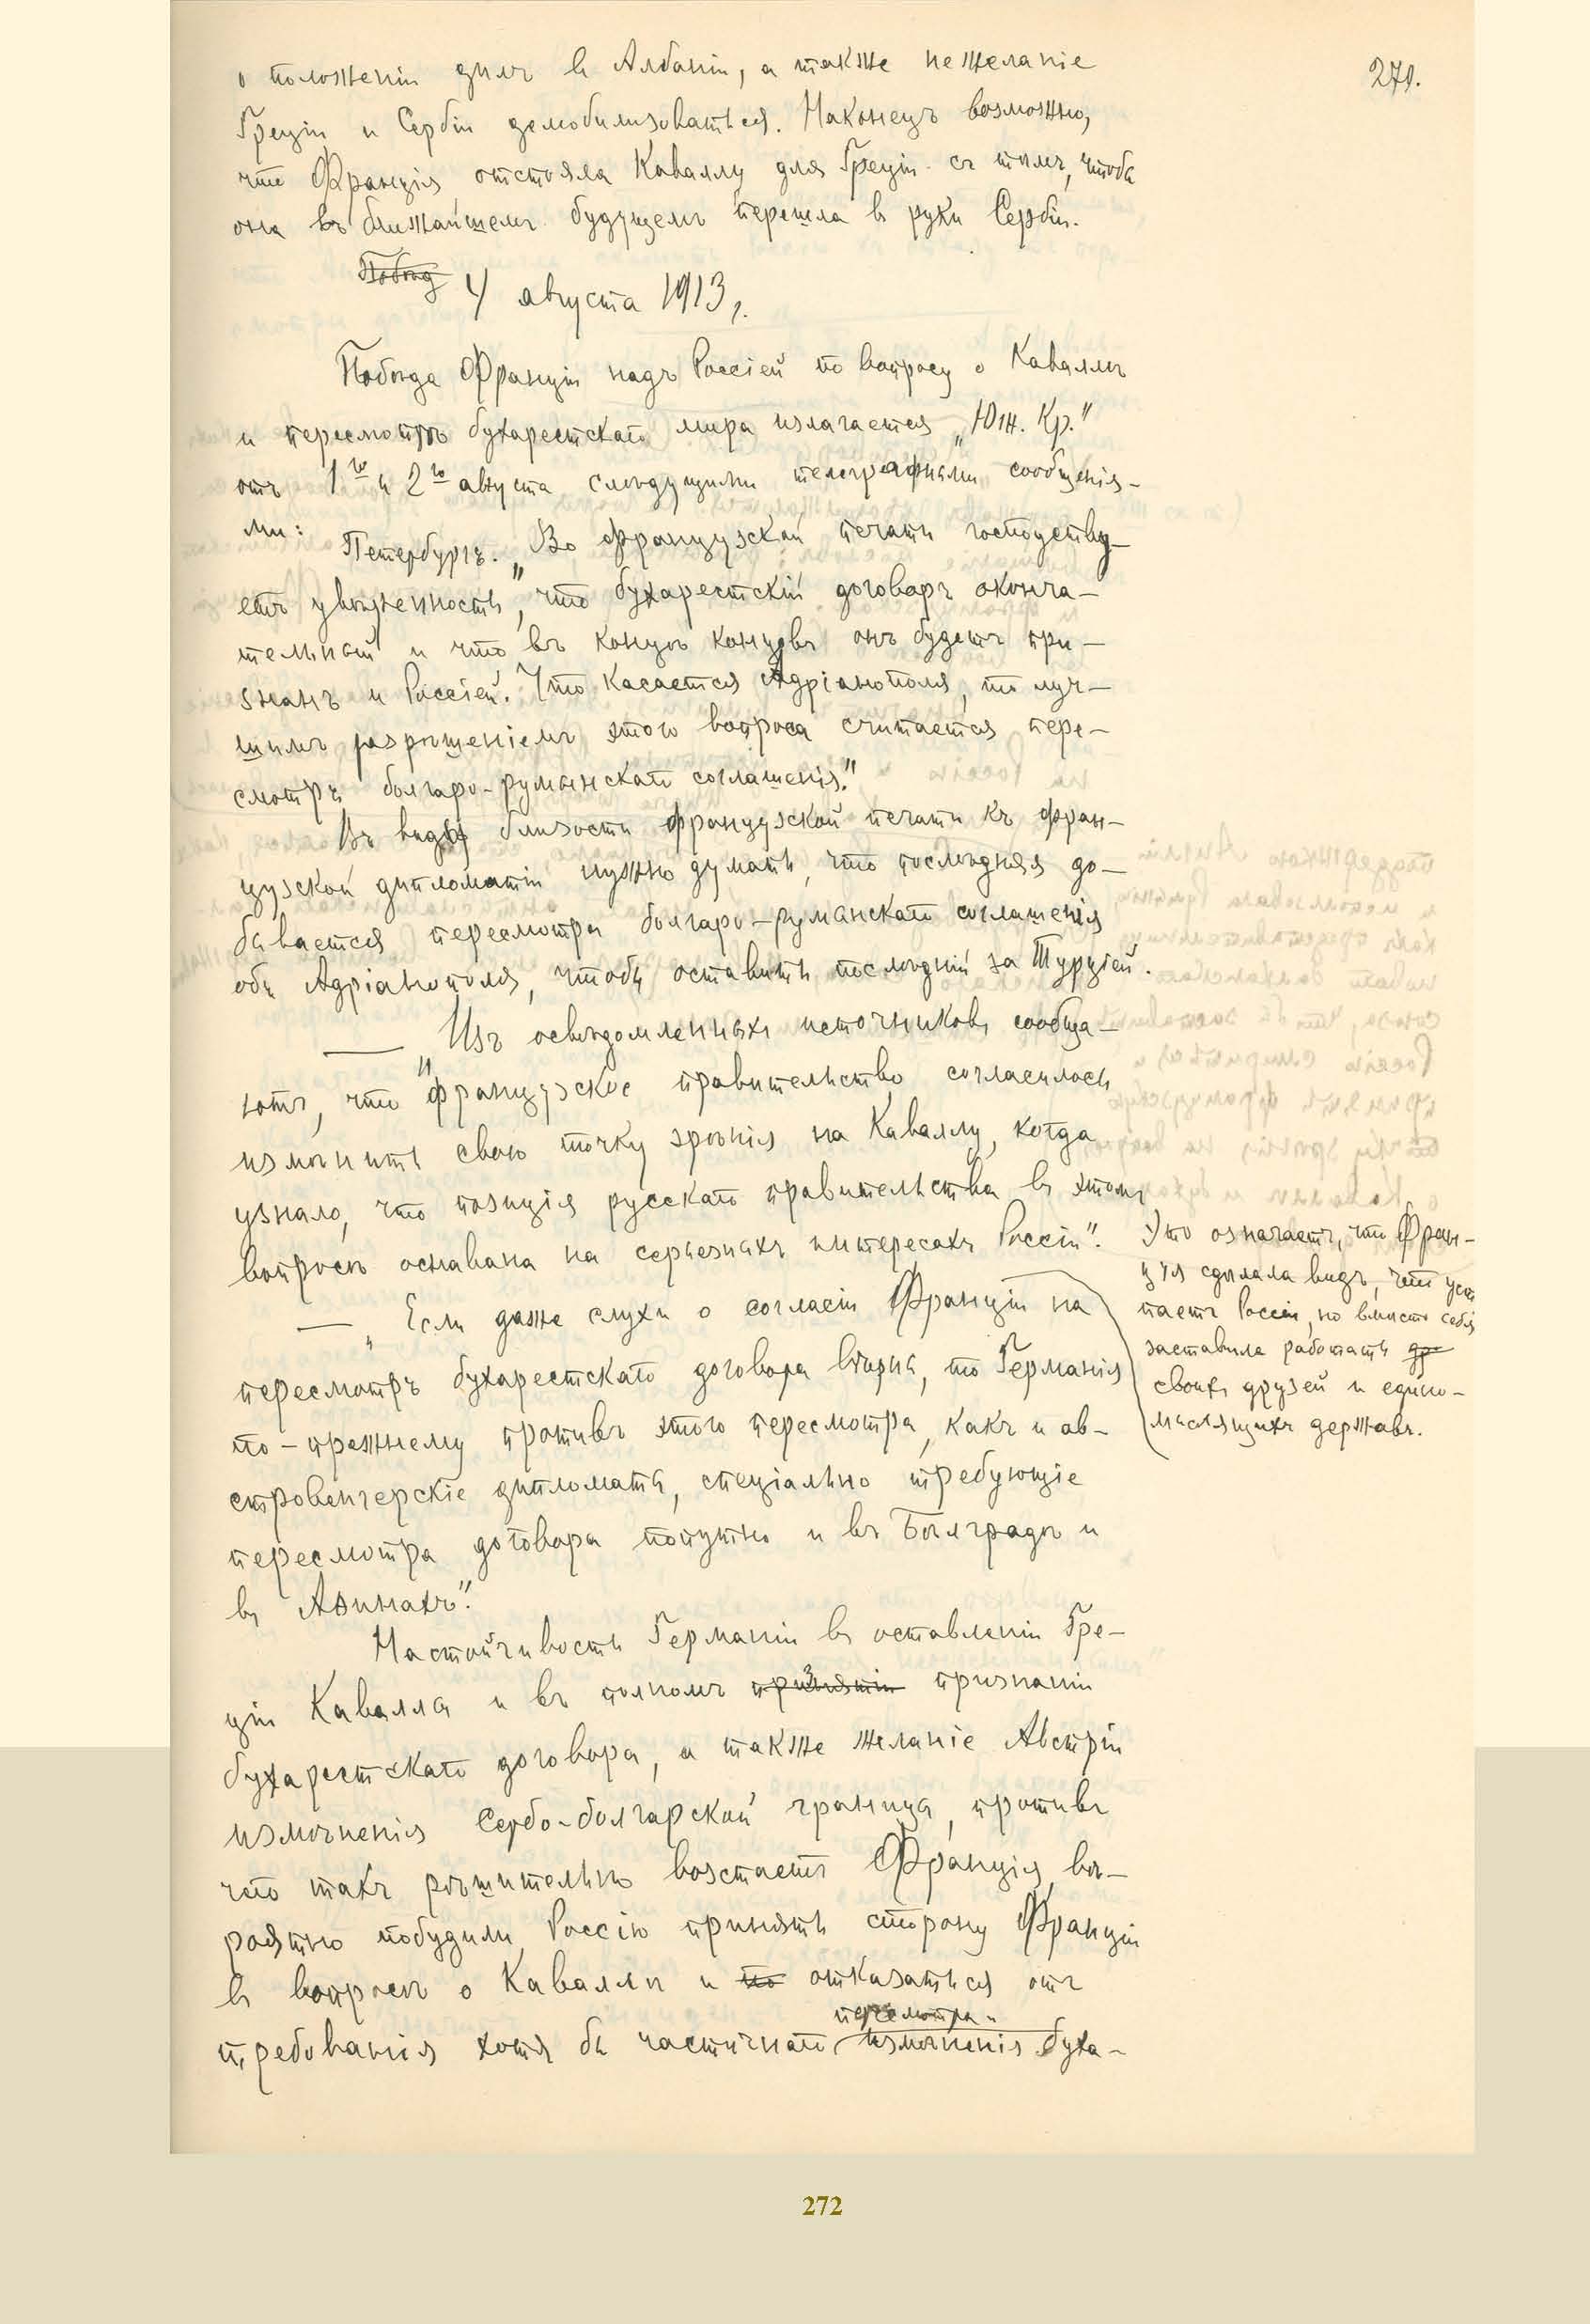 271.
о положеніи дѣлъ въ Албаніи, а также нежеланіе
Греціи и Сербіи демобилизоваться. Наконецъ возможно,
что Франція отстояла Каваллу для Греціи съ тѣмъ, чтобы
она въ ближайшемъ будущемъ перешла въ руки Сербіи.
Побѣд 4 августа 1913 г.
Побѣда Франціи надъ Россіей по вопросу о Каваллѣ
и пересмотрѣ бухарестскаго мира излагается „Юж. Кр."
отъ 1го и 2го августа слѣдующими телеграфными сообщенія-
ми: Петербургъ. „Во французской печати господству-
етъ увѣренность, что бухарестскій договоръ оконча-
тельный и что въ концѣ концовъ онъ будетъ при-
знанъ и Россіей. Что касается Адріанополя, то луч-
шимъ разрѣшеніемъ этого вопроса считается пере-
смотръ болгаро-румынскаго соглашенія."
Въ виду близости французской печати къ фран-
цузской дипломатіи нужно думать, что послѣдняя до-
бивается пересмотра болгаро-румынскаго соглашенія
объ Адріанополѣ, чтобы оставить послѣдній за Турціей.
— „Изъ освѣдомленныхъ источниковъ сообща-
ютъ, что французское правительство согласилось
измѣнить свою точку зрѣнія на Каваллу, когда
узнало, что позиція русскаго правительства въ этомъ
вопросѣ основана на серьезныхъ интересахъ Россіи".
Это означаетъ, что Фран-
ція сдѣлала видъ, что усту
паетъ Россіи, но вмѣсто себя
заставила работать др
своихъ друзей и едино-
мыслящихъ державъ.
— „Если даже слухи о согласіи Франціи на
пересмотръ бухарестскаго договора вѣрны, то Германія
по-прежнему противъ этого пересмотра, какъ и ав-
стровенгерскіе дипломаты, спеціально требующіе
пересмотра договора попутно и въ Бѣлградѣ и
въ Афинахъ".
Настойчивость Германіи въ оставленіи Гре-
ціи Каваллы и въ полномъ признаніи
бухарестскаго договора, а также желаніе Австріи
измѣненія Сербо-болгарской границы, противъ
чего такъ рѣшительно возстаетъ Франція, вѣ-
роятно побудили Россію принять сторону Франціи
въ вопросѣ о Каваллѣ и по отказаться отъ
пересмотра и
требованія хотя бы частичнаго измѣненія буха-
272